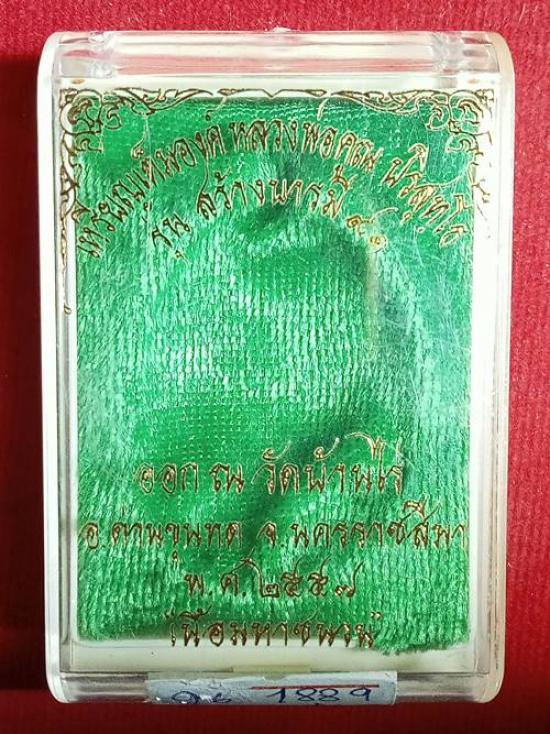 เหรียญเต็มองค์ หลวงพ่อคูณ ปริสุทฺโธ
รุ่น สร้างบารมี ๙๑
ออก ณ วัดบ้านไร่
อ.ด่านขุนทด จ.นครราชสีมา
พ.ศ.๒๕๕๗
เนื้อมหาชนวน
1889